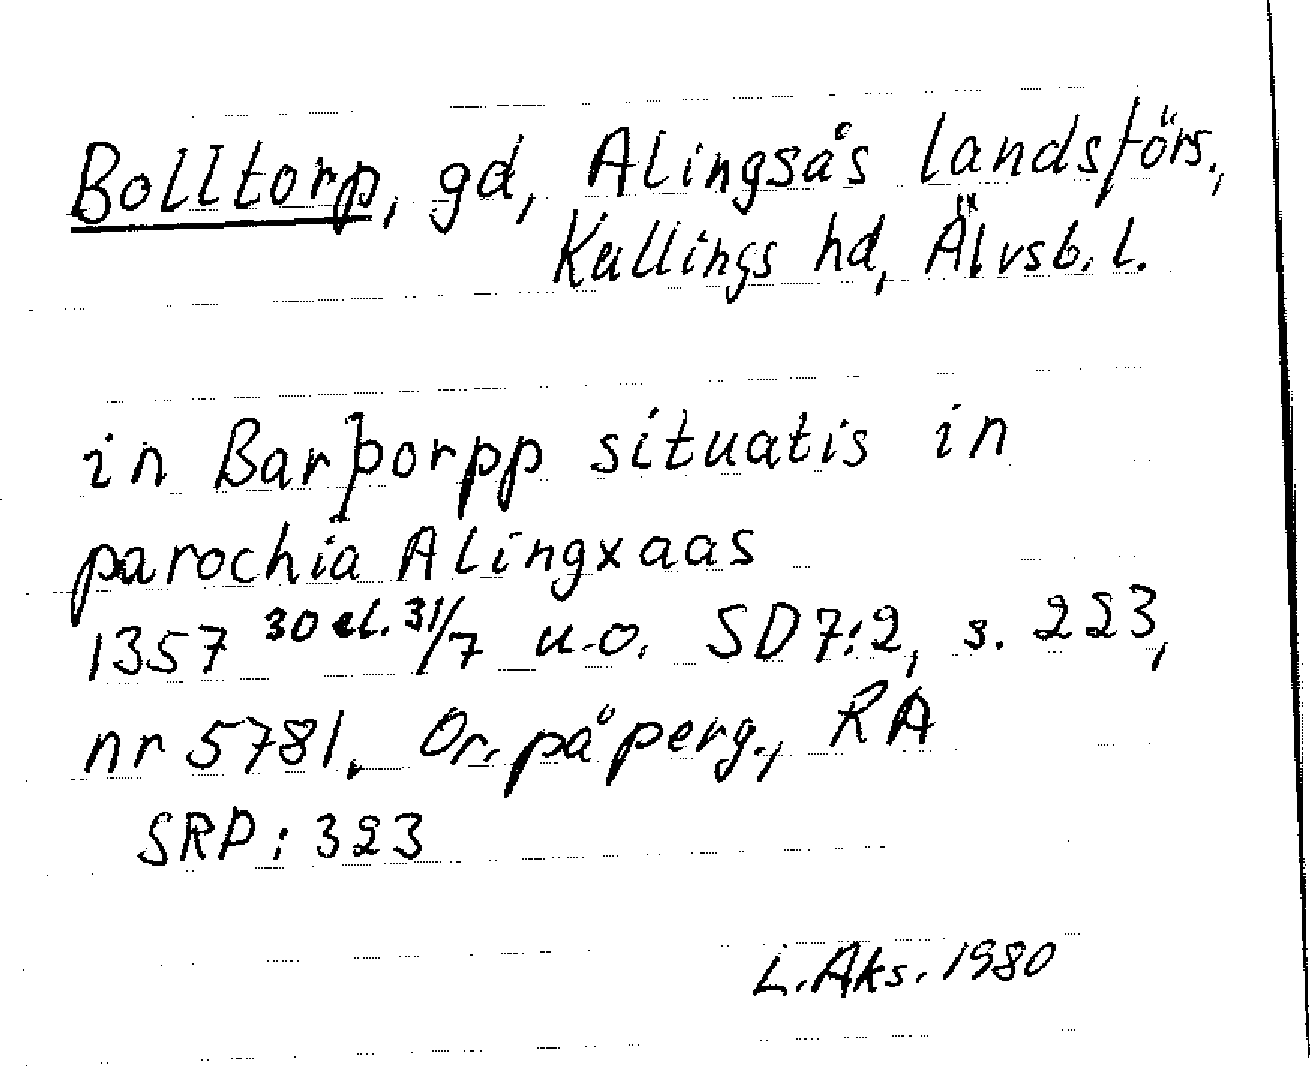 Bolltorp, gd, Alingsås landsförs.,
Kullings hd, Älvsb. l.
in Barþorpp situatis in
parochia Alingxaas
1357 30 el. 31/7 u.o. SD 7:2, s. 223,
nr 5781. Or. på perg., RA
SRP: 323
L. Aks. 1980